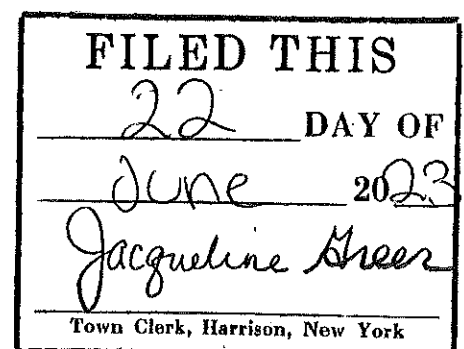 FILED THIS
22 DAY OF
June 2023
Jacqueline Greer
Town Clerk, Harrison, New York